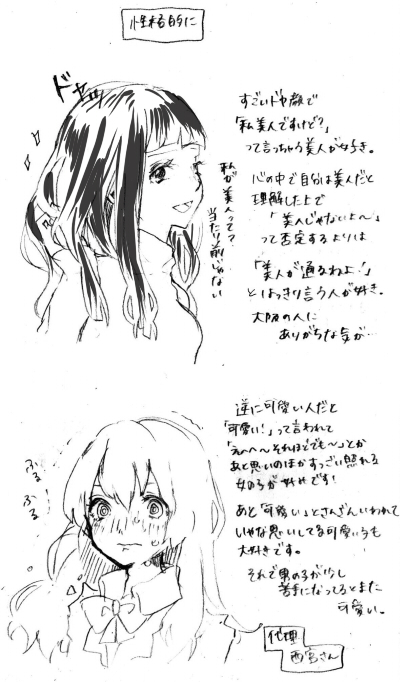 性格的に
ドヤッ
すごいドヤ顔で
「私美人ですけど？」
って言っちゃう美人が好き。
私が美人って？
当たり前じゃない
心の中で自分は美人だと
理解した上で
「美人じゃないよ～」
って否定するよりは
「美人が通るわよ！」
とはっきり言う人が好き。
大阪の人に
ありがちな気が…
逆に可愛い人だと
「可愛い！」って言われて
「え～へ～それほどでも～」とか
あと思いのほかすっごい照れる
女の子が好みです！
ふる
ふる
あと「可愛い」とさんざんいわれて
いやな思いしてる可愛いうも
大好きです。
それで男の子が少し
苦手になってるとまた
可愛い。
代理
西宮さん